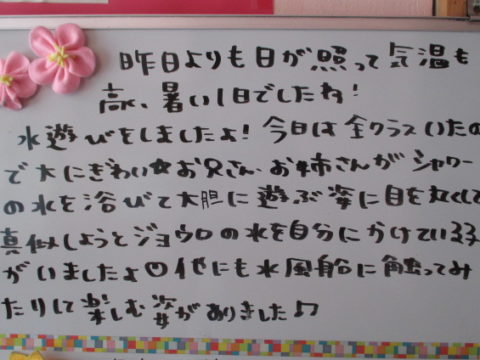 昨日よりも日が照って気温も
高く、暑い1日でしたね!
水遊びをしましたよ!今日は全クラスいたの
で大にぎわい★お兄さん、お姉さんがシャワー
の水を浴びて大胆に遊ぶ姿に目を丸くして
真似しようとジョウロの水を自分にかけている子
がいましたよ♡他にも水風船に触ってみ
たりして楽しむ姿がありました♫